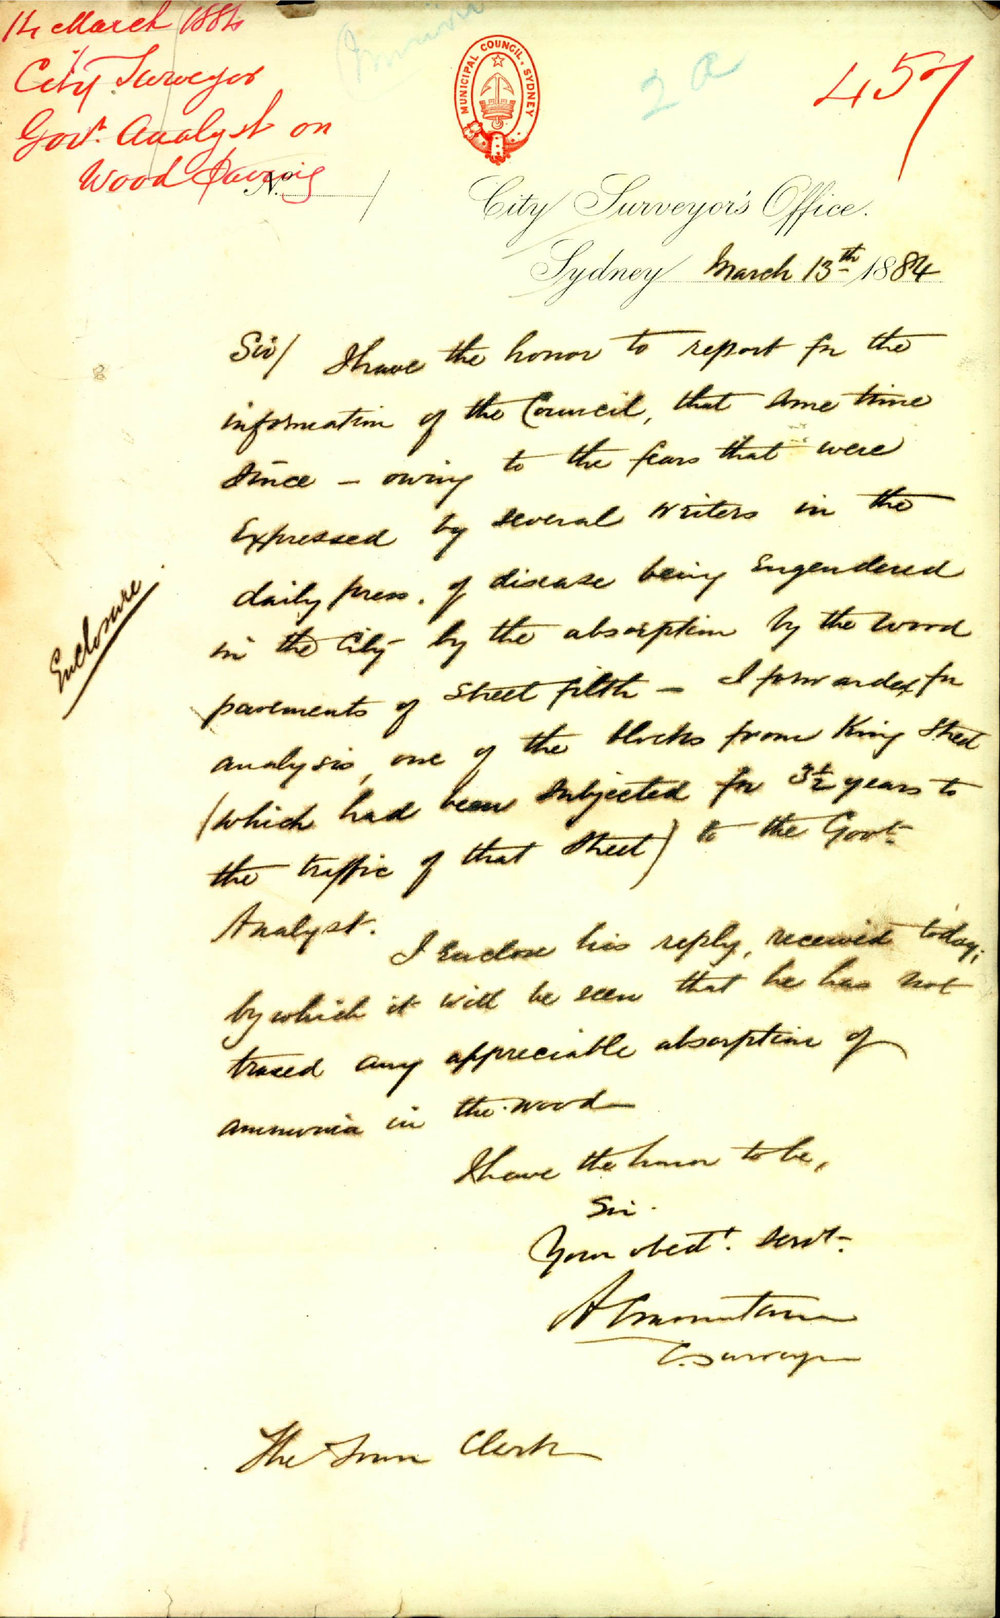 14 March 1884
City Surveyor
Govt. Analyst on
Wood Paving
MUNICIPAL COUNCIL. SYDNEY
2a
457
No.
City Surveyor's Office.
Sydney March 13th 1884
Sir/ I have the honor to report for the
information of the Council, that some time
since – owing to the fears that were
Expressed by several writers in the
daily press. of disease being Engendered
in the City by the absorption by the wood
pavements of street filth – I forwarded for
analysis, one of the blocks from King Street
(which had been subjected for 3½ years to
the traffic of that Street) to the Govt.
Analyst.
Enclosure
I Enclose his reply, received today,
by which it will be seen that he has not
traced any appreciable absorption of
ammonia in the wood
I have the honor to be,
Sir.
Your obedt. servt.
A C Mountain
C. Surveyor
The Town Clerk